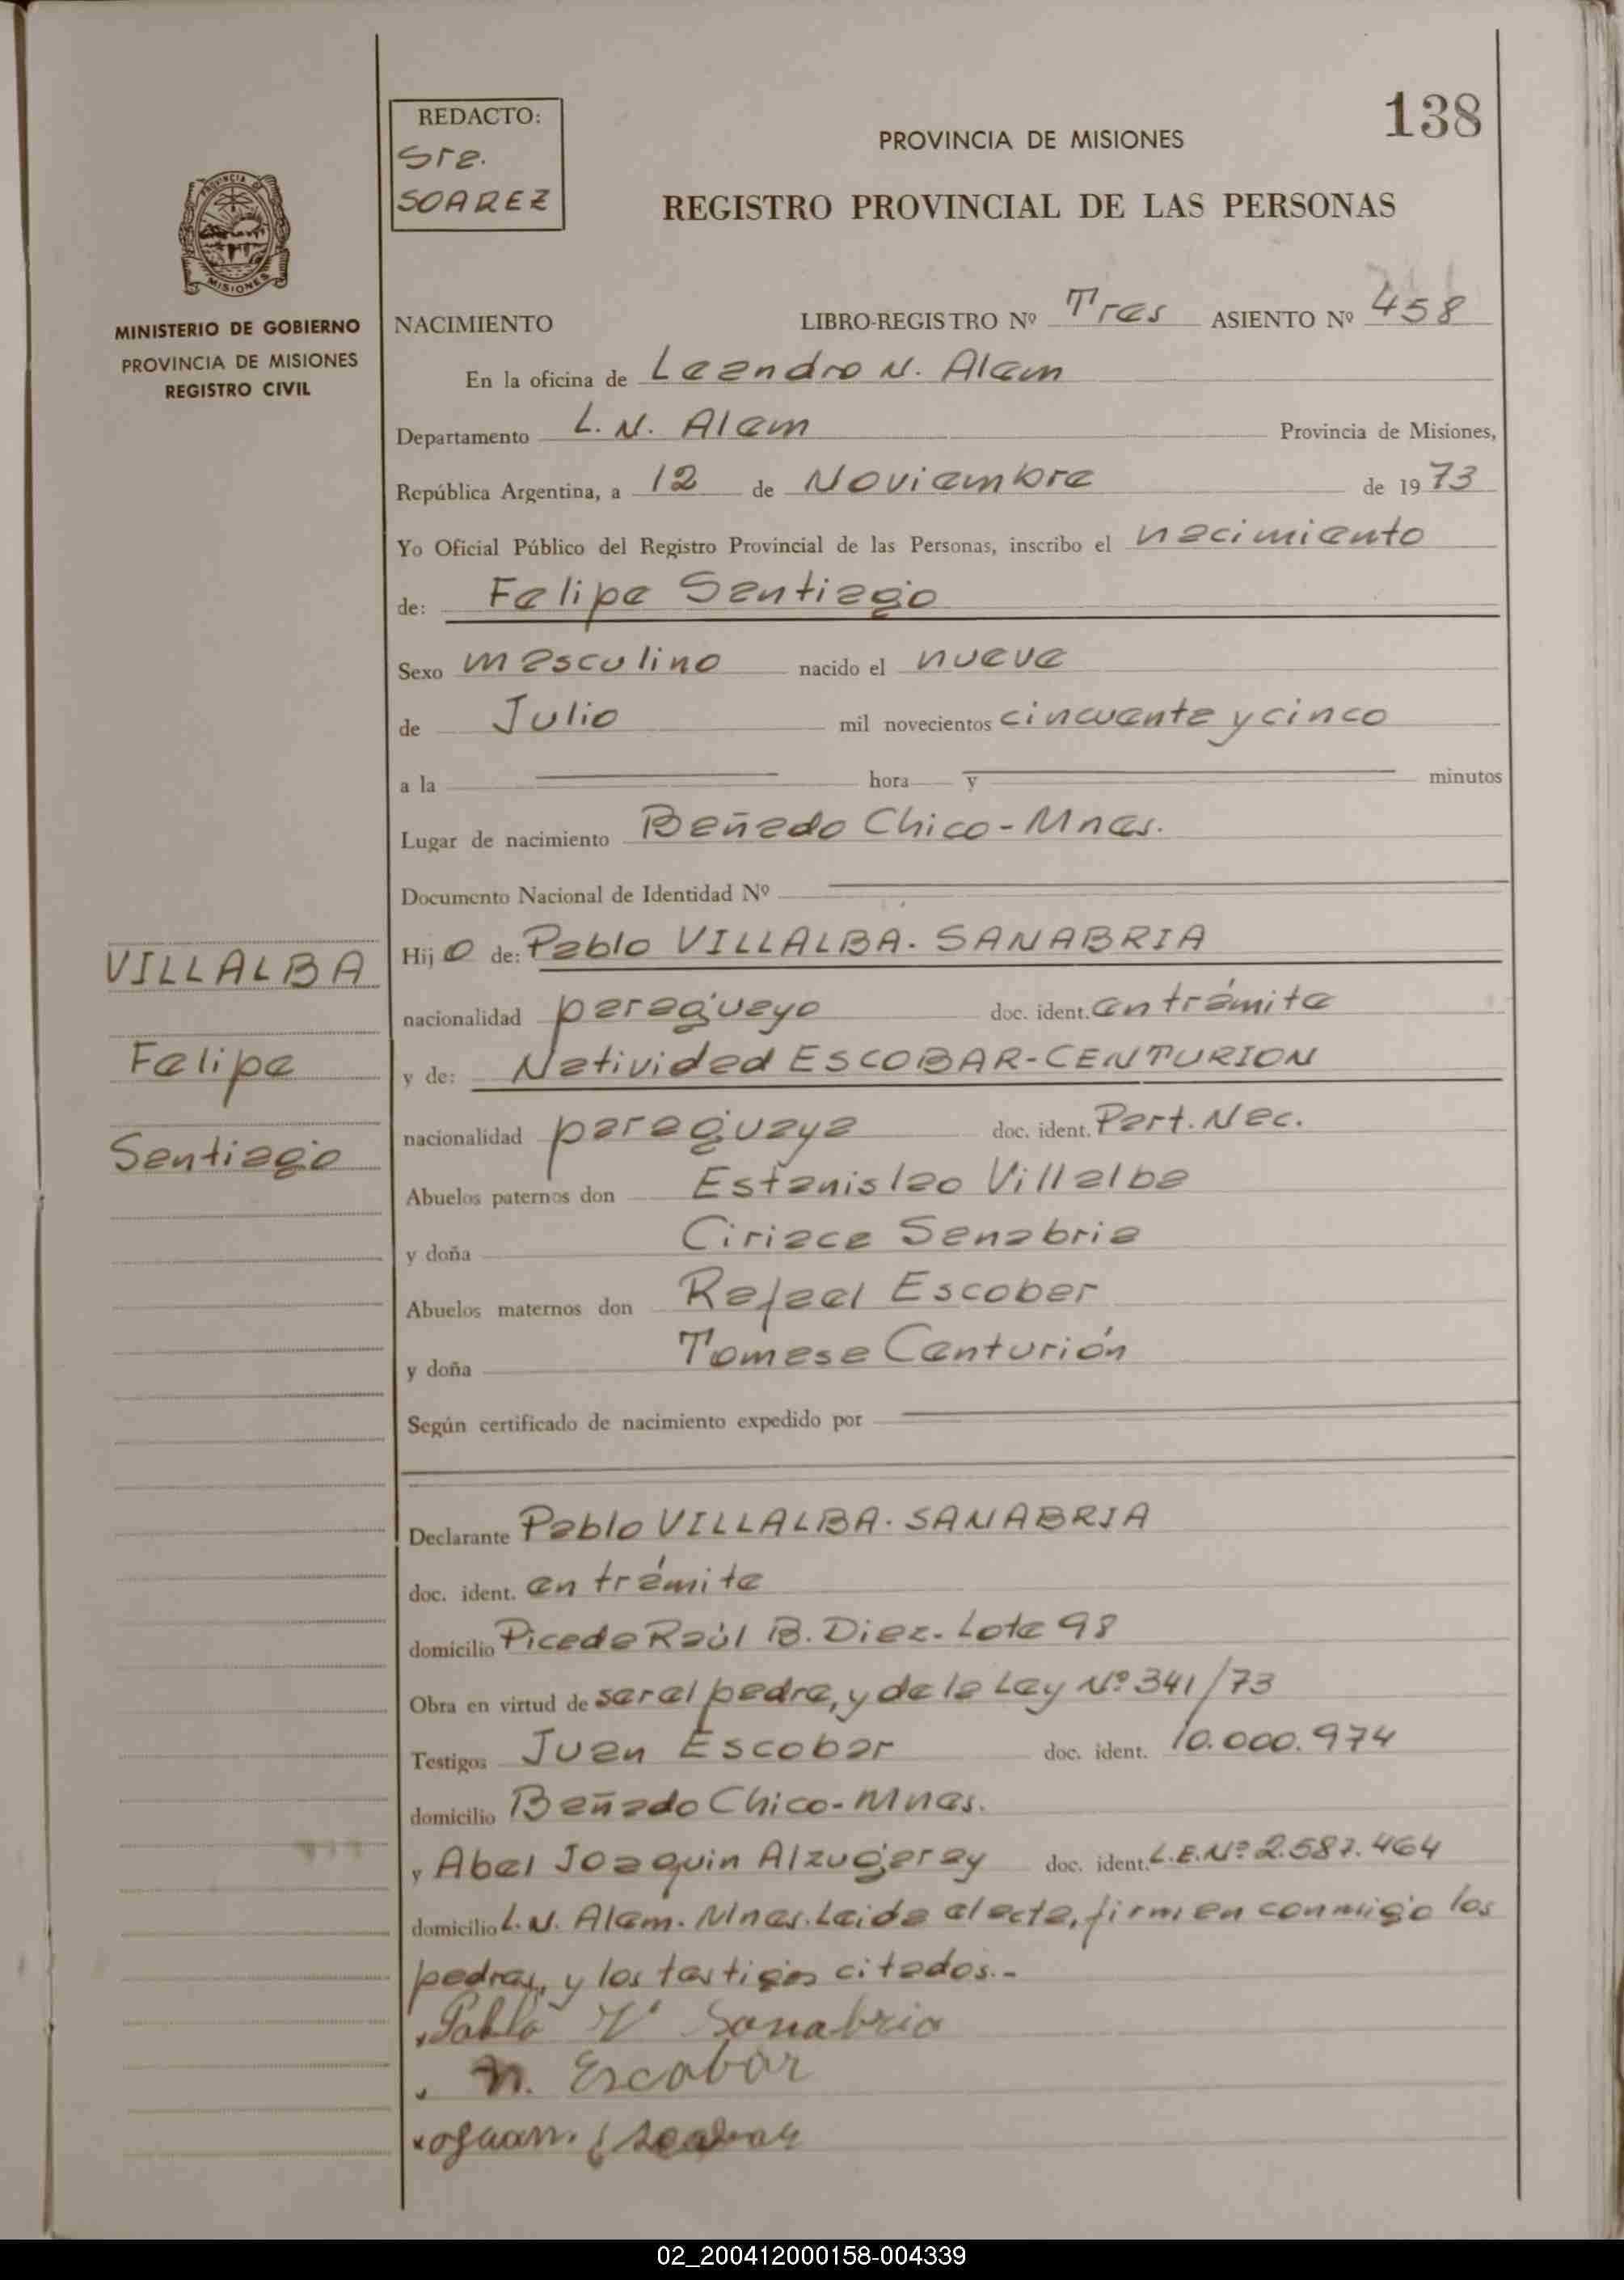 138
REDACTO:
Sra.
SOAREZ
PROVINCIA DE MISIONES
REGISTRO PROVINCIAL DE LAS PERSONAS
PROVINCIA DE
MISIONES
MINISTERIO DE GOBIERNO
PROVINCIA DE MISIONES
REGISTRO CIVIL
NACIMIENTO LIBRO-REGISTRO Nº Tres ASIENTO Nº 458
En la oficina de Leandro N. Alem
Departamento L. N. Alem Provincia de Misiones,
República Argentina, a 12 de Noviembre de 1973
Yo Oficial Público del Registro Provincial de las Personas, inscribo el nacimiento
de: Felipe Santiago
Sexo masculino nacido el nueve
de Julio mil novecientos cincuenta y cinco
a la hora y minutos
Lugar de nacimiento Bañado Chico - Mnes.
Documento Nacional de Identidad Nº
Hijo de: Pablo VILLALBA - SANABRIA
nacionalidad paraguayo doc. ident. en trámite
y de: Natividad ESCOBAR-CENTURION
nacionalidad paraguaya doc. ident. Part. Nac.
Abuelos paternos don Estanislao Villalba
y doña Ciriaca Sanabria
Abuelos maternos don Rafael Escobar
y doña Tomasa Centurión
Según certificado de nacimiento expedido por
VILLALBA
Felipe
Santiago
Declarante Pablo VILLALBA - SANABRIA
doc. ident. en trámite
domicilio Picada Raúl B. Diaz - Lote 98
Obra en virtud de ser el padre, y de la Ley Nº 341/73
Testigos Juan Escobar doc. ident. 10.000.974
domicilio Bañado Chico - Mnes.
y Abel Joaquin Alzugaray doc. ident. L.E.Nº 2.587.464
domicilio L. N. Alem. Mnes. Leida el acta, firman conmigo los
padres, y los testigos citados.-
Pablo V Sanabria
N. Escobar
Juan Escobar
02_200412000158-004339